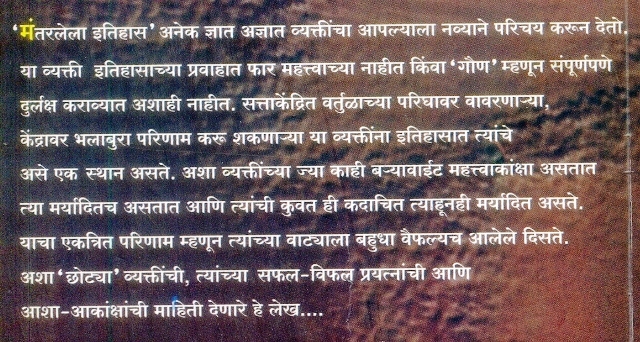 ‘मंतरलेला इतिहास’ अनेक ज्ञात अज्ञात व्यक्तींचा आपल्याला नव्याने परिचय करून देतो.
या व्यक्ती इतिहासाच्या प्रवाहात फार महत्त्वाच्या नाहीत किंवा ‘गौण’ म्हणून संपूर्णपणे
दुर्लक्ष कराव्यात अशाही नाहीत. सत्ताकेंद्रित वर्तुळाच्या परिघावर वावरणाऱ्या,
केंद्रावर भलाबुरा परिणाम करू शकणाऱ्या या व्यक्तींना इतिहासात त्यांचे
असे एक स्थान असते. अशा व्यक्तींच्या ज्या काही बऱ्यावाईट महत्त्वाकांक्षा असतात
त्या मर्यादितच असतात आणि त्यांची कुवत ही कदाचित त्याहूनही मर्यादित असते.
याचा एकत्रित परिणाम म्हणून त्यांच्या वाट्याला बहुधा वैफल्यच आलेले दिसते.
अशा ‘छोट्या’ व्यक्तींची, त्यांच्या सफल-विफल प्रयत्नांची आणि
आशा-आकांक्षांची माहिती देणारे हे लेख....